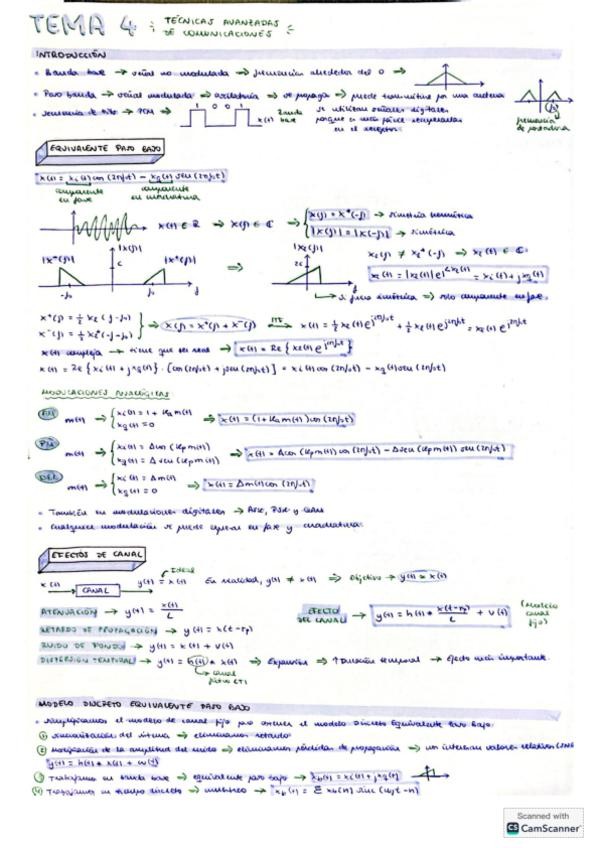 TEMA 4: TÉCNICAS AVANZADAS
DE COMUNICACIONES
INTRODUCCIÓN
• Banda base → señal no modulada → frecuencias alrededor del 0 →
• Paso banda → señal modulada → → se propaga → puede transmitirse por una antena
• Secuencia de bits → PCM → 1 0 0 1 x(t) Banda base
se utilizan señales digitales
porque es más fácil recuperarlas
en el receptor.
frecuencia
de portadora
EQUIVALENTE PASO BAJO
x(t) = xi(t) cos(2πf₀t) − xq(t) sen(2πf₀t)
componente
en fase
componente
en cuadratura
x(t) ∈ R → X(f) ∈ C → X(f) = X*(-f) → simetría hermítica
|X(f)| = |X(-f)| → simétrica
|X⁻(f)| |X(f)| |X⁺(f)| ⇒ |Xl(f)|
-f₀ f₀ f
Xl(f) ≠ Xl*(-f) → xl(t) ∈ C
= xi(t) + jxq(t)
Si fuera simétrica ⇒ sólo componente en fase.
X⁺(f) = ½ Xl(f-f₀)
X⁻(f) = ½ Xl*(-f-f₀)
⇒ X(f) = X⁺(f) + X⁻(f)
x(t) compleja → tiene que ser real → x(t) = Re{xl(t) e^j2πf₀t}
x(t) = Re{[xi(t) + jxq(t)] · [cos(2πf₀t) + jsen(2πf₀t)]} = xi(t) cos(2πf₀t) − xq(t) sen(2πf₀t)
MODULACIONES ANALÓGICAS:
AM m(t) → xi(t) = 1 + Ka m(t)
xq(t) = 0
→ x(t) = (1 + Ka m(t)) cos(2πf₀t)
PM m(t) → xi(t) = A cos(Kp m(t))
xq(t) = A sen(Kp m(t))
→ x(t) = A cos(Kp m(t)) cos(2πf₀t) − A sen(Kp m(t)) sen(2πf₀t)
DBL m(t) → xi(t) = A m(t)
xq(t) = 0
→ x(t) = A m(t) cos(2πf₀t)
• También en modulaciones digitales → ASK, PSK y QAM
• Cualquier modulación se puede expresar en fase y cuadratura.
EFECTOS DE CANAL
Ideal
x(t) → CANAL → y(t) = x(t) En realidad, y(t) ≠ x(t) ⇒ Objetivo → y(t) ≈ x(t)
ATENUACIÓN → y(t) = x(t)/L
EFECTO
DEL CANAL → y(t) = h(t) * x(t-τp)/L + v(t) (Modelo
canal
fijo)
RETARDO DE PROPAGACIÓN → y(t) = x(t-τp)
RUIDO DE FONDO → y(t) = x(t) + v(t)
DISPERSIÓN TEMPORAL → y(t) = h(t) * x(t) ⇒ Expansión → ↑ Duración temporal → efecto más importante.
canal
filtro LTI
MODELO DISCRETO EQUIVALENTE PASO BAJO
• Simplificamos el modelo de canal fijo para obtener el modelo Discreto Equivalente Paso Bajo.
① Sincronización del sistema → eliminamos retardo
② Modificación de la amplitud del ruido → eliminamos pérdidas de propagación → nos interesan valores relativos (SNR)
y(t) = h(t) * x(t) + w(t)
③ Trabajamos en banda base → equivalente paso bajo → xb(t) = xi(t) + jxq(t)
④ Trabajamos en tiempo discreto → muestreo → xb(t) = Σ xb[n] sinc(wt-n)
Scanned with
CS CamScanner